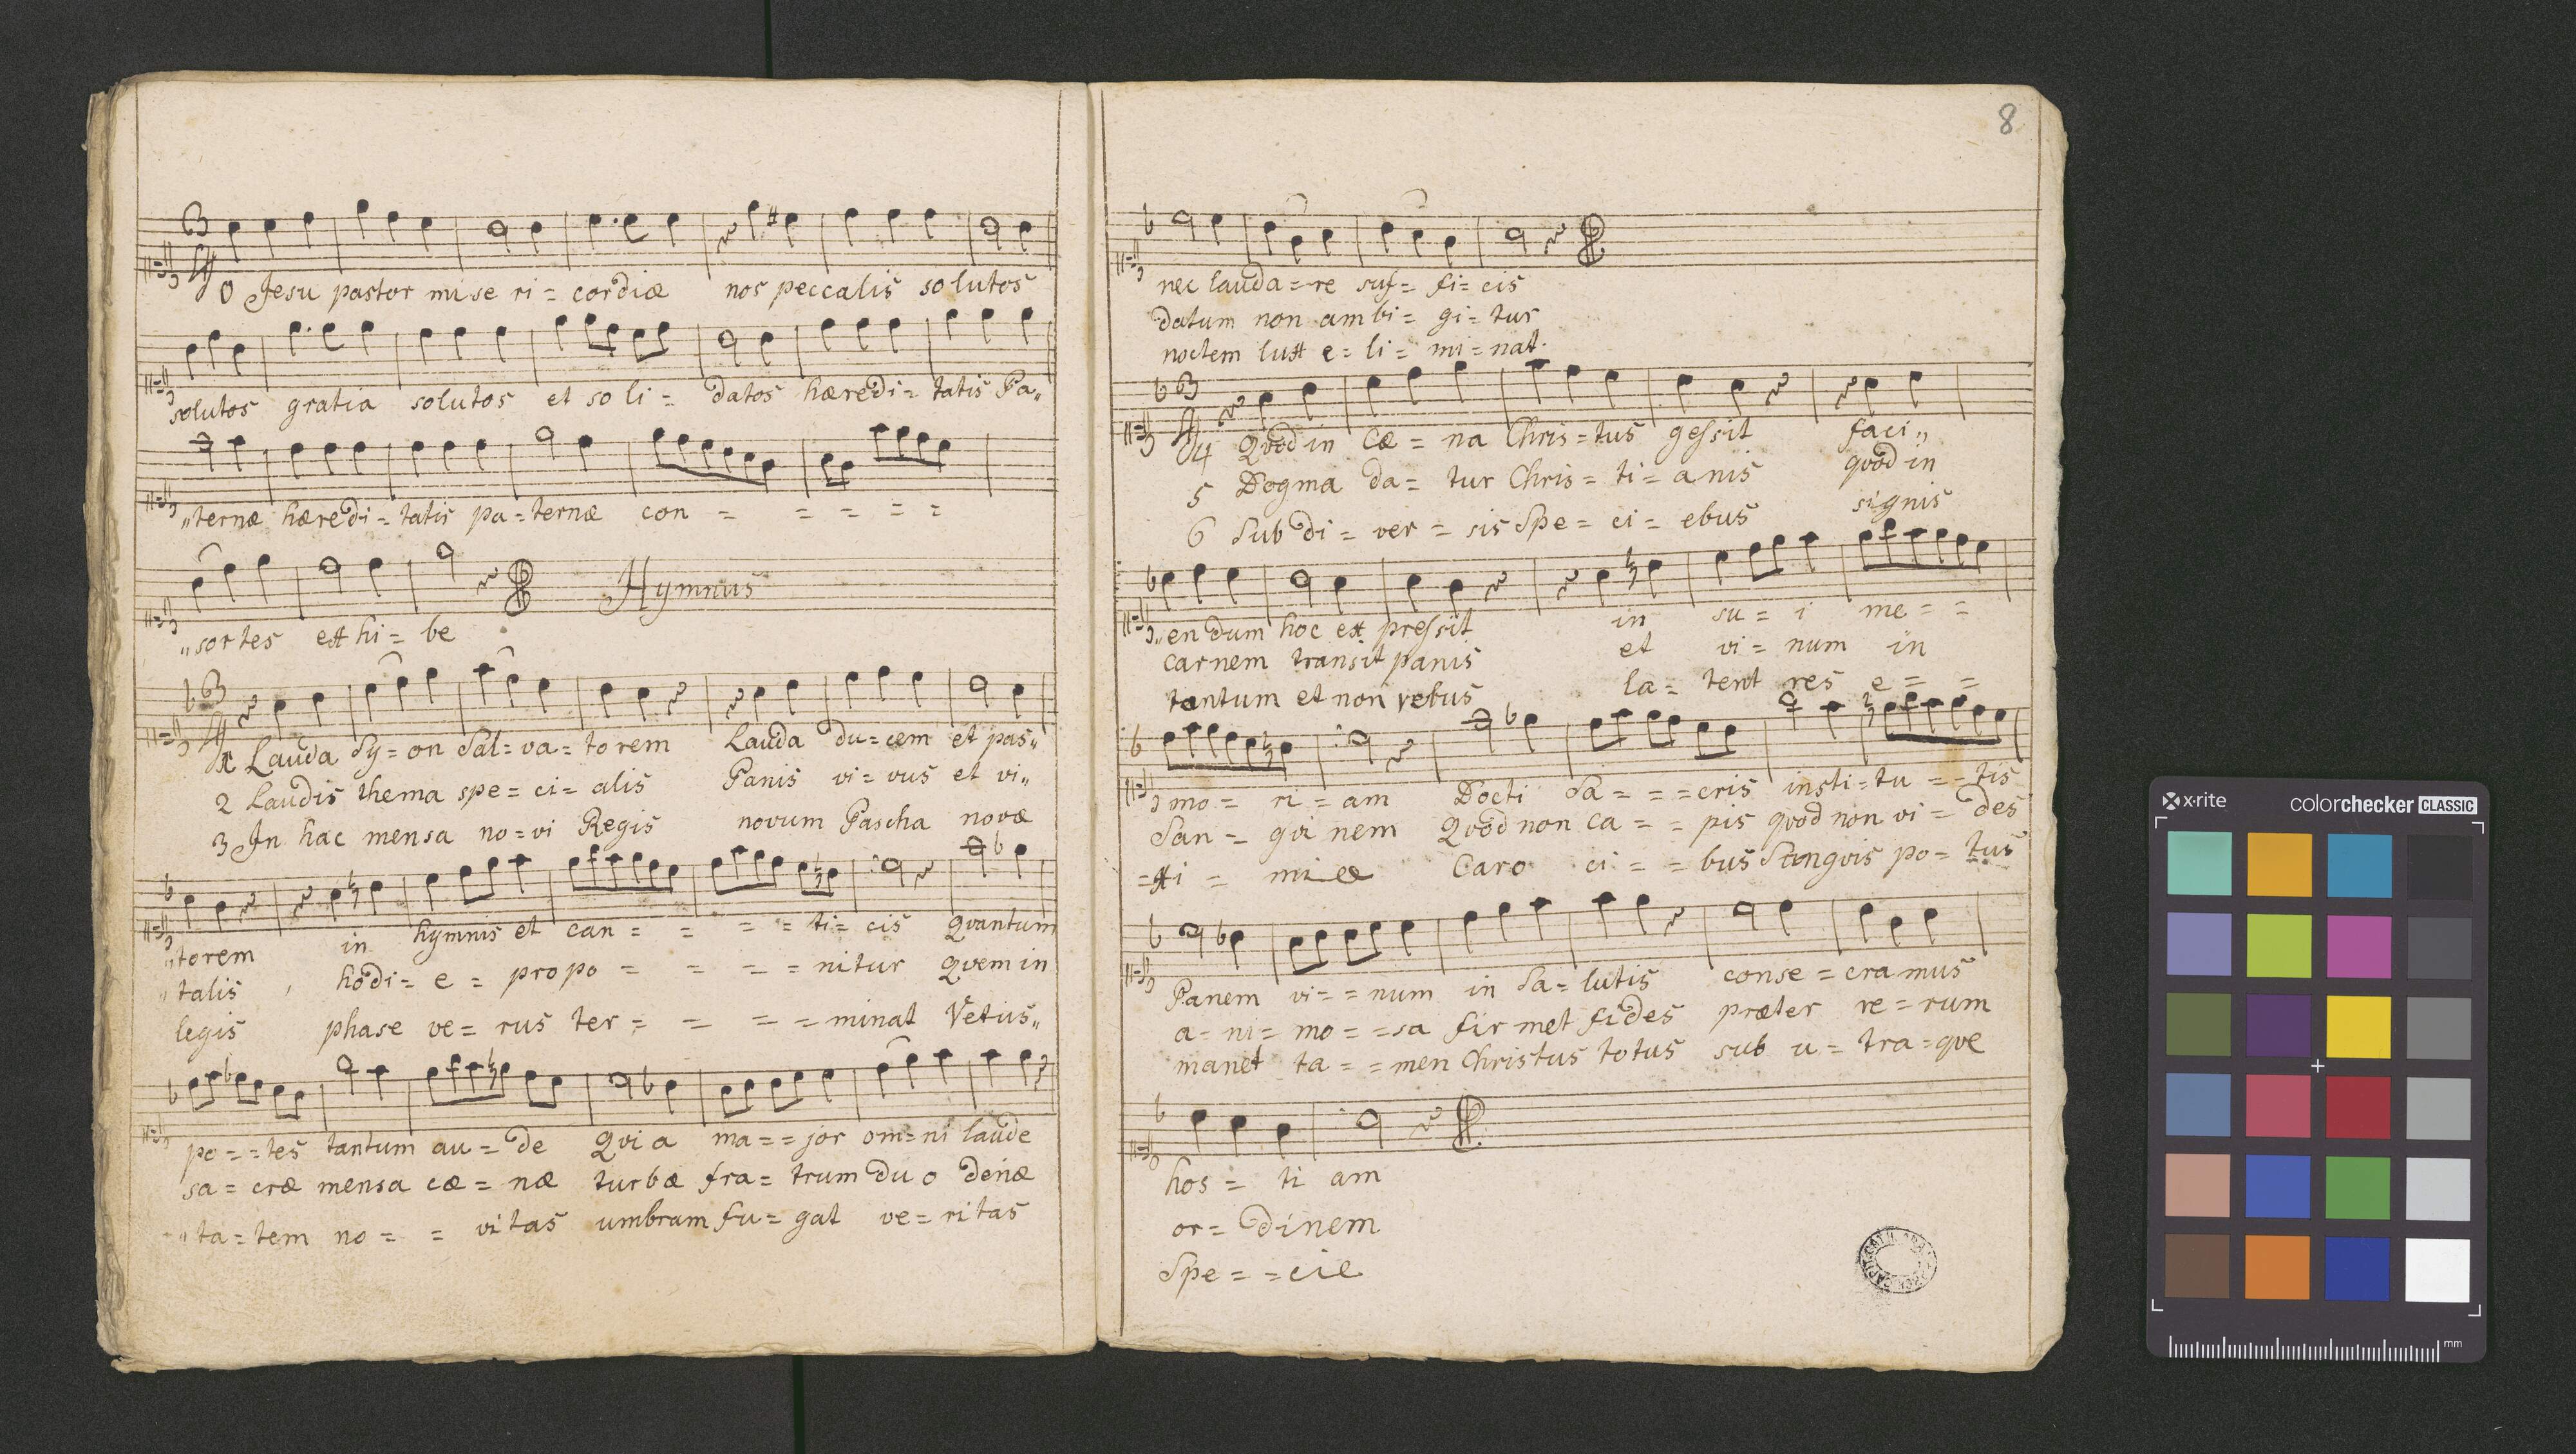 O Jesu pastor mise ri = cordiæ nos peccalis solutos
solutos gratia solutos et so li = datos hæredi = tatis Pa„
„ternæ hæredi = tatis pa = ternæ con = = = = =
Hymnus
„sortes exhi = be
1 Lauda Sy = on Sal = va = torem Lauda du = cem et pas„
2 Laudis thema spe = ci = alis Panis vi = vus et vi„
3 In hac mensa no = vi Regis novum Pascha novæ
„torem in hymnis et can = = = = ti = cis qvantum
„talis hodi = e = propo = = = = nitur qvem in
legis phase ve = rus ter = = = = minat Vetus„
po = = tes tantum au = de Qvi a ma = = jor om = ni laude
sa = cræ mensa cæ = næ turbæ fra = trum du o denæ
„ta = tem no = = vitas umbram fu = gat ve = ritas
8
nec lauda = re suf = fi = cis
datum non ambi = gi = tur
noctem lux e = li = mi = nat.
4 Qvod in Cæ = na Chris = tus gessit faci„
5 Dogma da = tur Chris = ti = anis qvod in
6 Sub di = ver = sis Spe = ci = ebus signis
„endum hoc ex pressit in su = i me = =
carnem transit panis et vi = num in
tantum et non rebus la = tent res e = =
mo = ri = am Docti Sa = = = cris insti = tu = = tis
San = gvi nem Qvod non ca = = pis qvod non vi = des
= xi = miæ Caro ci = = bus Sangvis po = tus
Panem vi = = num in Sa = lutis conse = cramus
a = ni = mo = = sa firmet fides præter re = rum
manet ta = = men Christus totus sub u = tra = qve
hos = ti am
or = dinem
Spe = = cie
x·rite colorchecker CLASSIC
mm